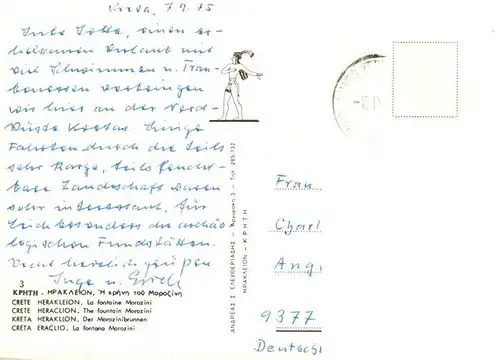 Kreta, 7.9.75
Gute Lotte, einen er-
holsamen Urlaub mit
viel Schwimmen u. Trau-
benessen verbringen
wir hier an der Nord-
küste Kretas. Einige
Fahrten durch die teils
sehr karge, teils frucht-
bare Landschaft waren
sehr interessant, für
Erich besonders die archäo-
logischen Fundstätten.
Recht herzlich grüßen
Inge u. Erich
3
ΚΡΗΤΗ - ΗΡΑΚΛΕΙΟΝ, Ἡ κρήνη τοῦ Μοροζίνη
CRETE HERAKLEION, La fontaine Morozini
CRETE HERACLION, The fountain Morozini
KRETA HERAKLION, Der Morozinibrunnen
CRETA ERACLIO, La fontana Morozini
ΑΝΔΡΕΑΣ Σ. ΕΛΕΥΘΕΡΙΑΔΗΣ - Κορωναίου 3 - Τηλ. 285.732
ΗΡΑΚΛΕΙΟΝ - ΚΡΗΤΗ
Frau
Charl
Ang
9377
Deutschl